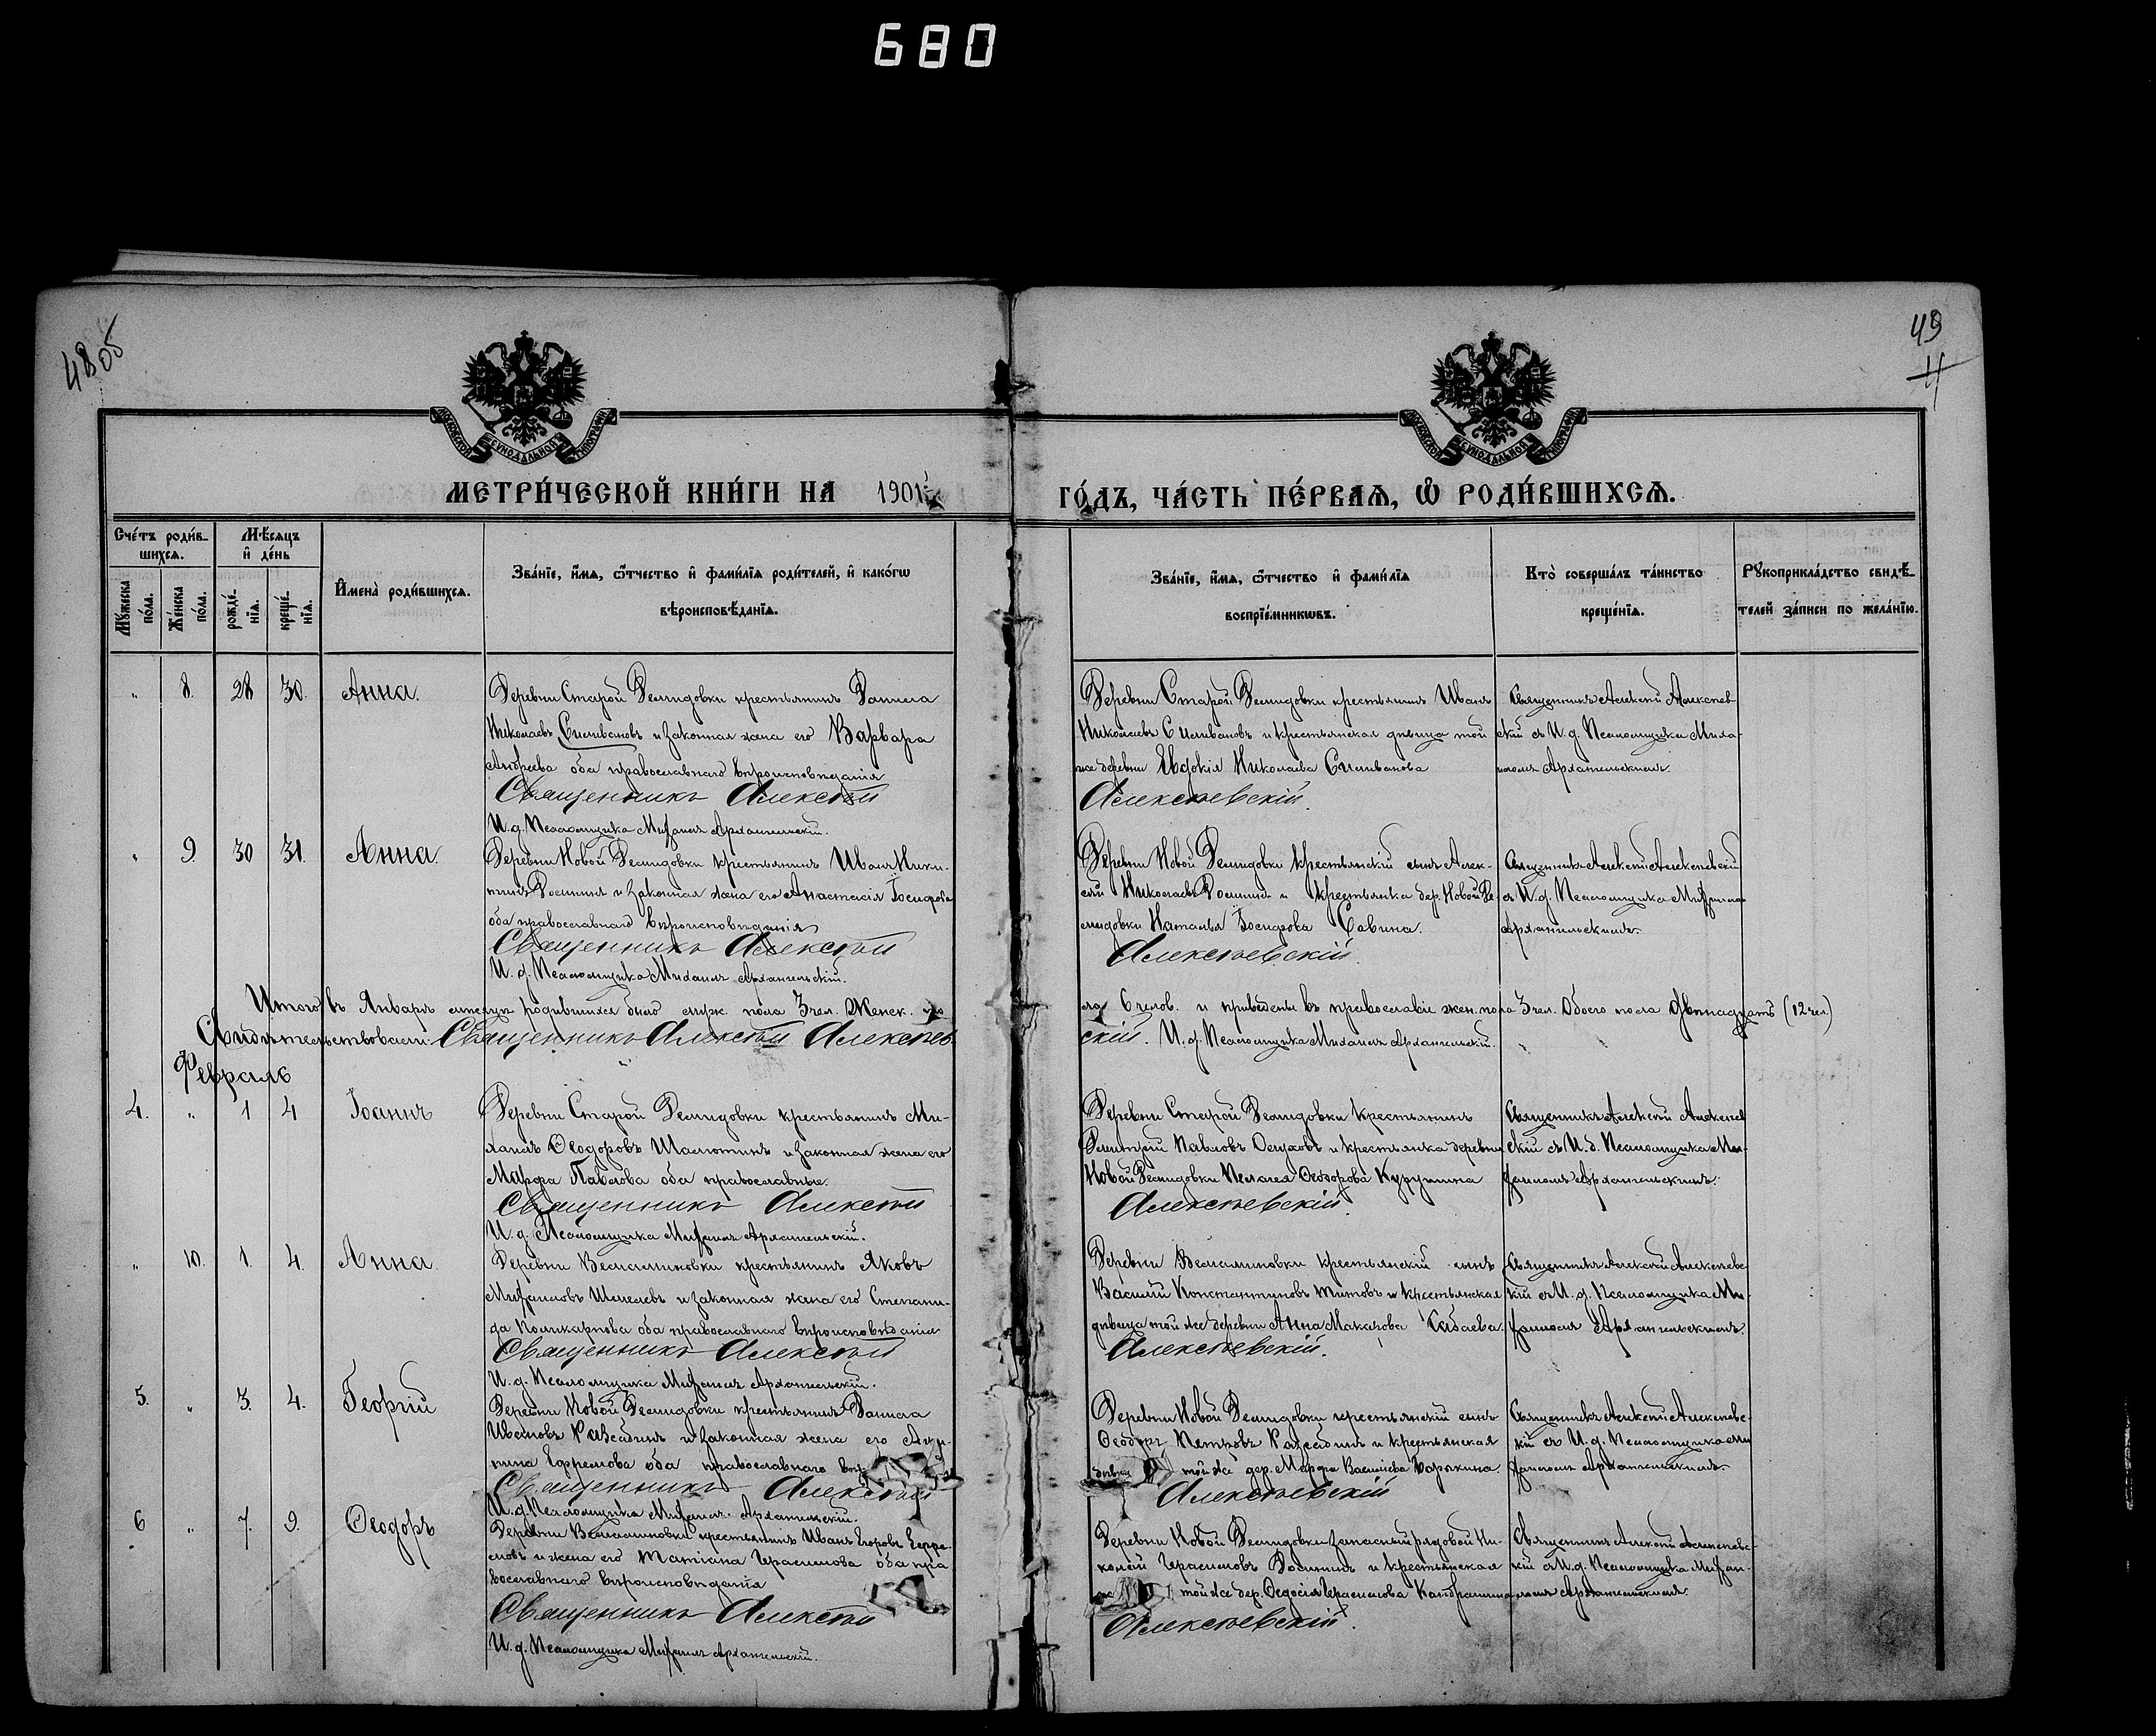 680
48об
49
4
МОСКОВСКОЙ СѴНОДАЛЬНОЙ ТИПОГРАФІИ
МОСКОВСКОЙ СѴНОДАЛЬНОЙ ТИПОГРАФІИ
МЕТРИ́ЧЕСКОЙ КНИ́ГИ НА 1901
ГО́ДЪ, ЧА́СТЬ ПЕ́РВАѦ, Ѽ РОДИ́ВШИХСѦ.
Сче́тъ роди́в-
шихсѧ.
Мꙋ́жеска по́ла.
Же́нска по́ла.
Мѣ́сѧцъ
и҆ де́нь
рожде́-нїѧ.
креще́-нїѧ.
И҆мена̀ роди́вшихсѧ.
Зва́нїе, и҆́мѧ, ѻ҆́тчество и҆ фами́лїѧ роди́телей, и҆ како́гѡ
вѣроисповѣ́данїѧ.
Зва́нїе, и҆́мѧ, ѻ҆́тчество и҆ фами́лїѧ
воспрїе́мникѡвъ.
Кто̀ соверша́лъ та́инство
креще́нїѧ.
Рꙋкоприкла́дство свидѣ́-
телей за́писи по жела́нїю.
„ 8. 28 30. Анна.
Деревни Старой Демидовки крестьянинъ Данила
Николаевъ Силивановъ и законная жена его Варвара
Андреева оба православнаго вѣроисповѣданія
Священникъ Алексѣй
И. д. Псаломщика Михаилъ Архангельскій.
Деревни Старой Демидовки крестьянинъ Иванъ
Николаевъ Силивановъ и крестьянская дѣвица той
же деревни Евдокія Николаева Силиванова
Алексѣевскій.
Священникъ Алексѣй Алексѣев-
скій съ И. д. Псаломщика Миха-
иломъ Архангельскимъ.
„ 9 30 31. Анна.
Деревни Новой Демидовки крестьянинъ Иванъ Ники-
тинъ и законная жена его Анастасія Іосифова
оба православнаго вѣроисповѣданія
Священникъ Алексѣй
И. д. Псаломщика Михаилъ Архангельскій.
Деревни Новой Демидовки крестьянскій сынъ Алек-
сѣй Николаевъ и крестьянка дер. Новой Де-
мидовки Наталья Іосифова Савина.
Алексѣевскій.
Священникъ Алексѣй Алексѣевскій
съ И. д. Псаломщика Михаиломъ
Архангельскимъ.
Итого въ Январѣ мѣсяцѣ родившихся было муж. пола 3 чел. Женск. по-
ла 6 челов. и приведены въ православіе жен. пола 3 чел. Обоего пола двѣнадцать (12 чел.)
Свидѣтельствовали: Священникъ Алексѣй Алексѣев-
скій. И. д. Псаломщика Михаилъ Архангельскій.
Февраль
4. „ 1 4 Іоаннъ
Деревни Старой Демидовки крестьянинъ Ми-
хаилъ Ѳеодоровъ и законная жена его
Марфа Павлова оба православные.
Священникъ Алексѣй
И. д. Псаломщика Михаилъ Архангельскій.
Деревни Старой Демидовки крестьянинъ
Димитрій Павловъ и крестьянка деревни
Новой Демидовки Пелагея Ѳеодорова
Алексѣевскій.
Священникъ Алексѣй Алексѣев-
скій съ И. д. Псаломщика Ми-
хаиломъ Архангельскимъ.
„ 10. 1. 4. Анна.
Деревни Веніаминовки крестьянинъ Яковъ
Михаиловъ и законная жена его Степани-
да Поликарпова оба православнаго вѣроисповѣданія
Священникъ Алексѣй
И. д. Псаломщика Михаилъ Архангельскій.
Деревни Веніаминовки крестьянскій сынъ
Василій Константиновъ Титовъ и крестьянская
дѣвица той же деревни Анна Макарова Кабаева.
Алексѣевскій.
Священникъ Алексѣй Алексѣевс-
кій съ И. д. Псаломщика Ми-
хаиломъ Архангельскимъ.
5. „ 3. 4. Георгій
Деревни Новой Демидовки крестьянинъ Данила
Ивановъ и законная жена его
Ефремова оба православнаго
Священникъ Алексѣй
И. д. Псаломщика Михаилъ Архангельскій.
Деревни Новой Демидовки крестьянскій сынъ
Ѳеодоръ Петровъ и крестьянская
той же дер. Марфа Васильева
Алексѣевскій
Священникъ Алексѣй Алексѣевс-
кій съ И. д. Псаломщика Ми-
хаиломъ Архангельскимъ.
6 „ 7. 9. Ѳеодоръ
Деревни Веніаминовки крестьянинъ Иванъ Егоровъ Ефре-
мовъ и жена его Татіана Герасимова оба пра-
вославнаго вѣроисповѣданія
Священникъ Алексѣй
И. д. Псаломщика Михаилъ Архангельскій.
Деревни Новой Демидовки запасный рядовой Ни-
колай Герасимовъ и крестьянская
той же дер. Ѳедосія Герасимова
Алексѣевскій.
Священникъ Алексѣй Алексѣевс-
кій съ И. д. Псаломщика Михаи-
ломъ Архангельскимъ.